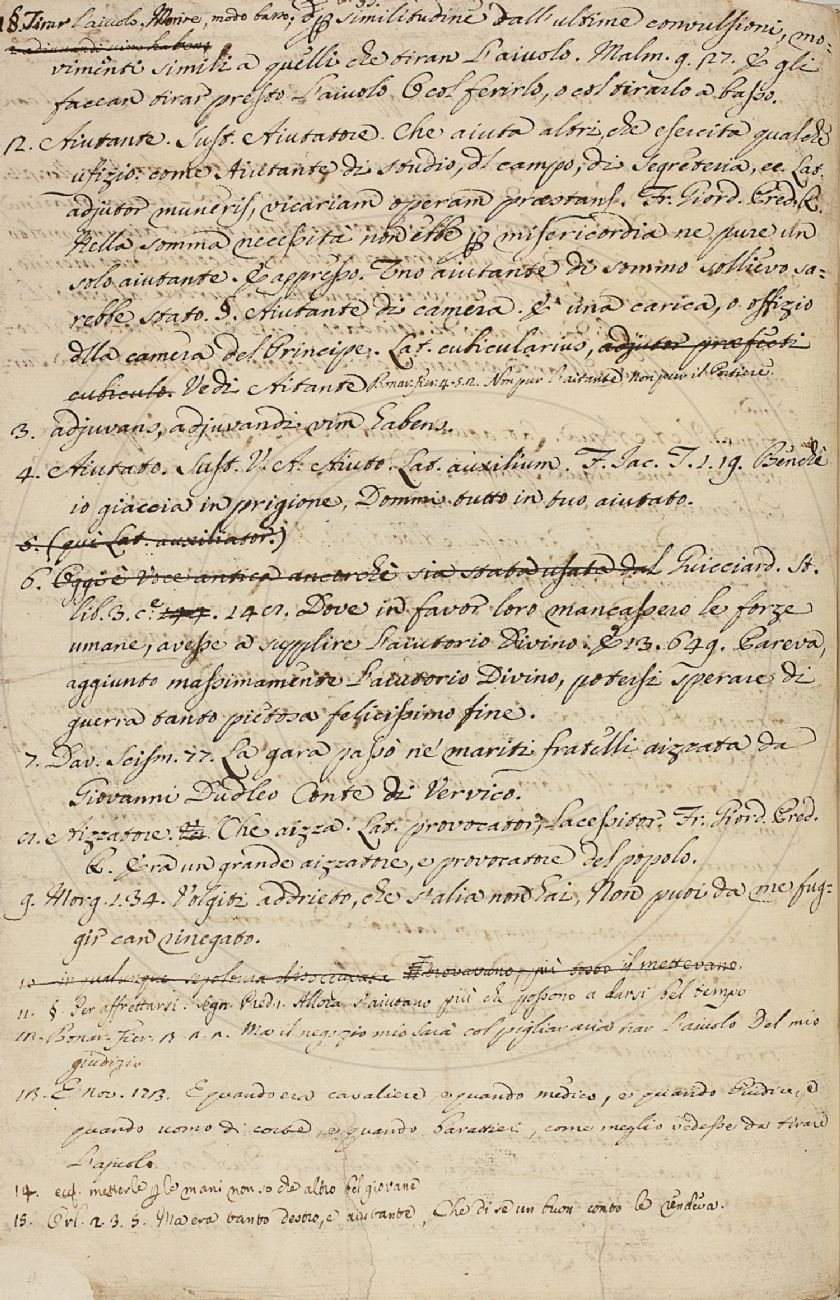 1 §. Tirar l'aiuolo. Morire, modo basso, ꝑ similitudine dall'ultime convulsioni, mo=
2 adjuvandi vim habens
vimenti simili a quelli che tiran l'aiuolo. Malm. 9. 27. E gli
faccan tirar presto l'aiuolo O col ferirlo, o col tirarlo a basso.
12. Aiutante. Sust. Aiutatore. Che aiuta altri, che esercita qualche
ufizio: come Aiutante di studio, di campo, di Segreteria, ec. Lat.
adjutor muneris, vicariam operam præstans. Fr. Giord. Pred. R.
Nella somma necessità non ebbe ꝑ misericordia ne pure un
solo aiutante. E appresso. Uno aiutante di sommo sollievo sa=
rebbe stato. §. Aiutante di camera. È una carica, o offizio
dlla camera del Principe. Lat. cubicularius, adjutor præfecti
cubiculo. Vedi Aitante Bonar. Fier. 4. 5. 2. Non pur l'aitante Non pur il Portiere
3. adjuvans, adjuvandi vim habens.
4. Aiutato. Sust. V. A. Aiuto. Lat. auxilium. F. Jac. T. 1. 19. Benchè
io giaccia in prigione, Dommi tutto in tuo aiutato.
5. (qui Lat. auxiliator.)
6. Oggi è Voce antica ancorchè sia stata usata dal Guicciard. St.
lib. 3. c.e 144. 142. Dove in favor loro mancassero le forze
umane, avesse a supplire l'aiutorio Divino. E 13. 649. Pareva,
aggiunto massimamente l'aiutorio Divino, potersi sperare di
guerra tanto pietosa felicissimo fine.
7. Dav. Scism. 77. La gara passò ne' mariti fratelli aizzata da
Giovanni Dudleo Conte di Vervico.
8. Aizzatore. Che aizza. Lat. provocator, lacessitor. Fr. Giord. Pred.
R. Era un grande aizzatore, e provocatore del popolo.
9. Morg. 1. 34. Volgiti addrieto, che s'alia non hai, Non puoi da me fug=
gir can rinegato.
10 in qualunque sepoltura trovavano, più tosto il mettevano.
11. § Per affrettarsi. Segn. Pred. 1. Allora s'aiutano più che possono a darsi bel tempo
12. Bonar. Fier. Ma il negozio mio sarà col pigliar aria tirar l'aiuolo Del mio
giudizio
13. E nov. E quando era cavaliere, e quando medico, e quando Giudice, e
quando uomo di corte, e quando barattieri, come meglio vedesse da tirare
l'ajuolo
14. metterle ꝑ le mani non so che altro bel giovane
15. Orl. 2. 3. 5. Ma era tanto destro, e aiutante, Che di se un buon conto le rendeva.